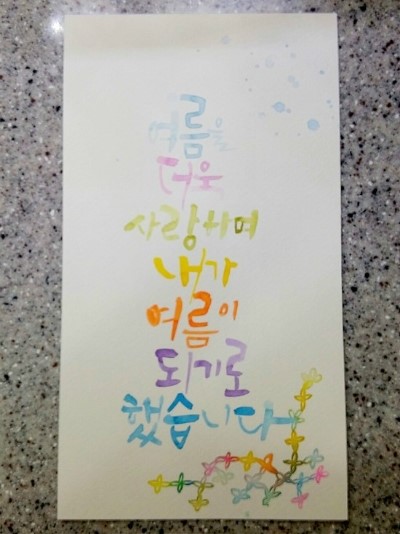 여름을
더욱
사랑하며
내가
여름이
되기로
했습니다